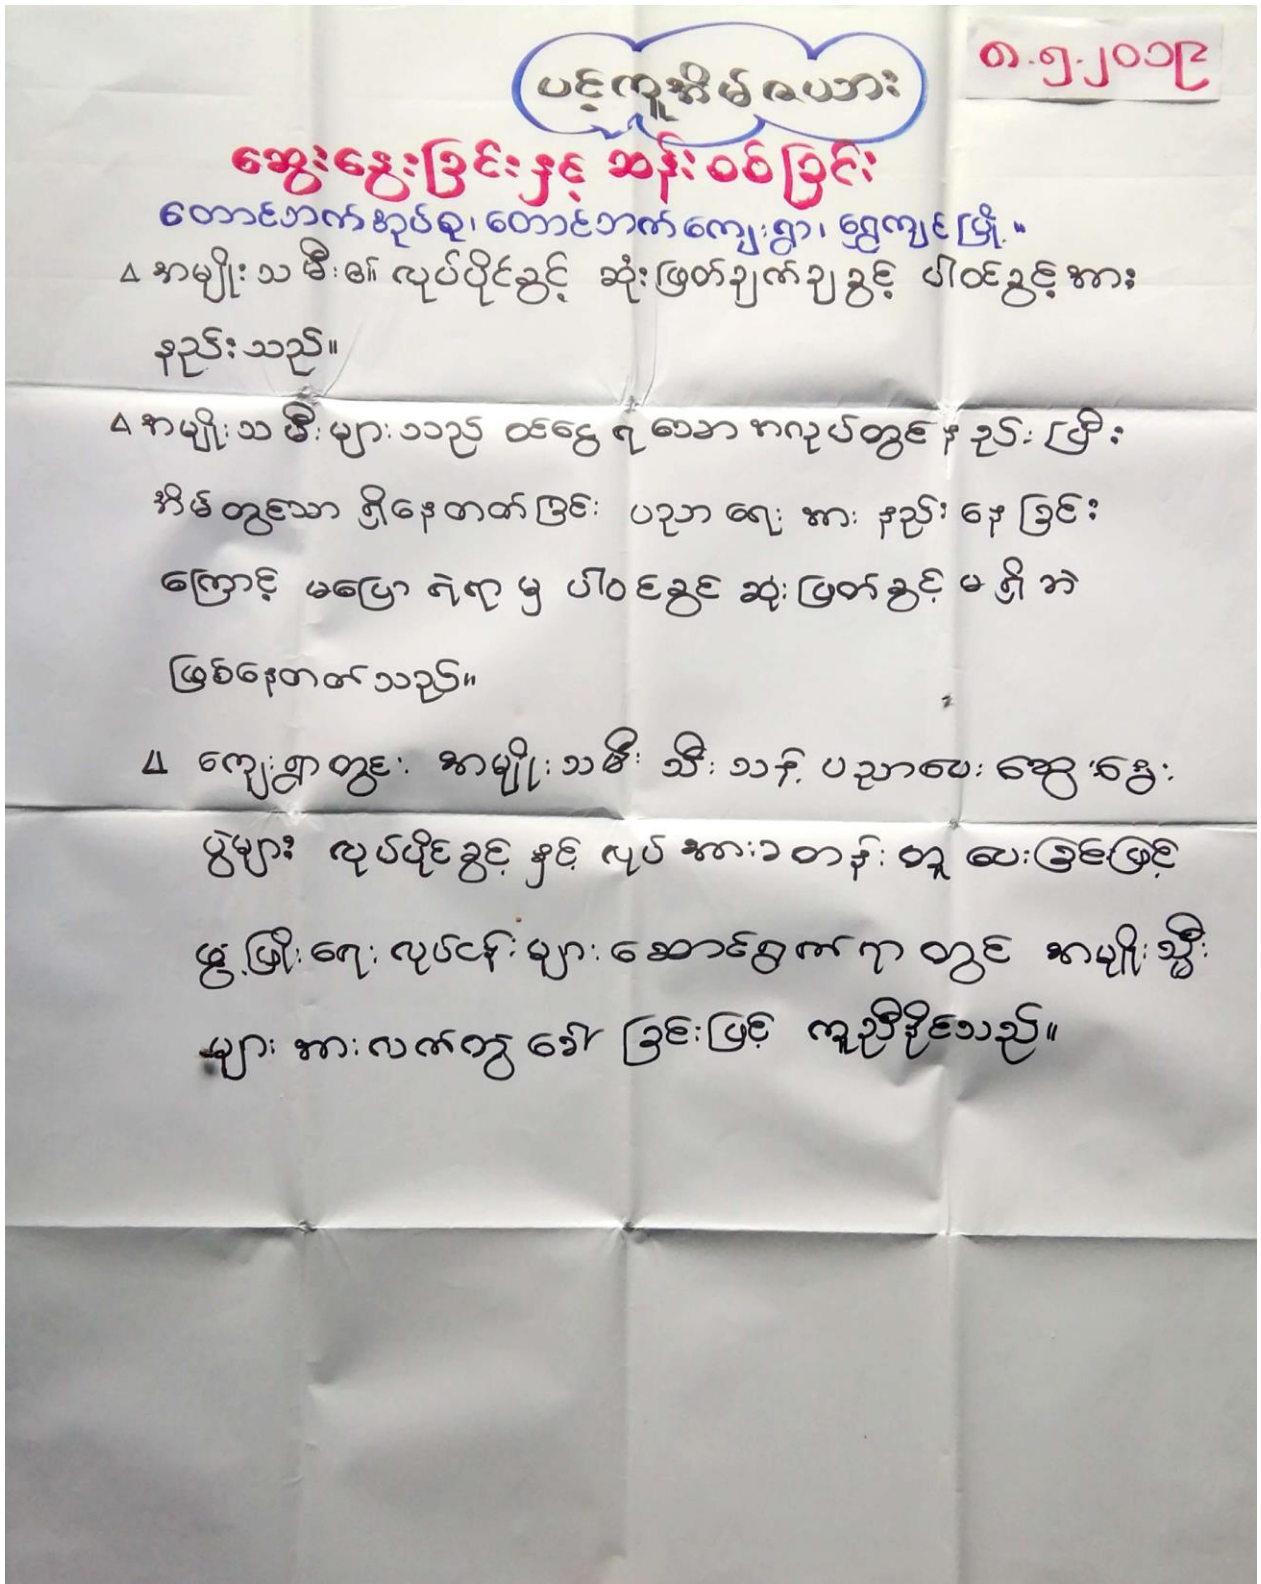 ပင့်ကူအိမ်ဇယား
၈.၅.၂၀၁၉
ဆွေးနွေးခြင်းနှင့် ဆန်းစစ်ခြင်း
တောင်ဘက်အုပ်စု၊ တောင်ဘက်ကျေးရွာ၊ ရွှေကျင်မြို့။
Δ အမျိုးသမီး၏ လုပ်ပိုင်ခွင့် ဆုံးဖြတ်ချက်ချခွင့် ပါဝင်ခွင့်အား
နည်းသည်။
Δ အမျိုးသမီးများသည် ဝင်ငွေရသောအလုပ်တွင်နည်းပြီး
အိမ်တွင်သာ ရှိနေတတ်ခြင်း ပညာရေး အား နည်းနေခြင်း
ကြောင့် မပြောရဲရာမှ ပါဝင်ခွင် ဆုံးဖြတ်ခွင့် မရှိဘဲ
ဖြစ်နေတတ်သည်။
Δ ကျေးရွာတွင်း အမျိုးသမီး သီးသန့် ပညာပေး ဆွေးနွေး
ပွဲများ လုပ်ပိုင်ခွင့် နှင့် လုပ်အားခတန်းတူ ပေးခြင်းဖြင့်
ဖွံ့ဖြိုးရေး လုပ်ငန်းများ ဆောင်ရွက်ရာတွင် အမျိုးသ္မီး
များအားလက်တွဲခေါ်ခြင်းဖြင့် ကူညီနိုင်သည်။